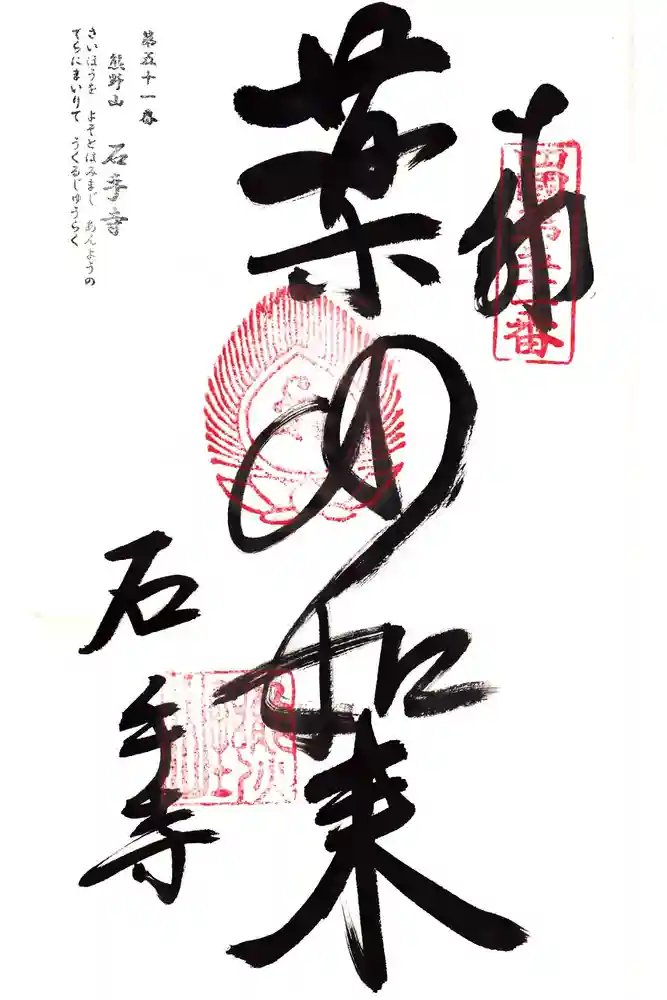 奉納
四國第五十一番
薬師如来
石手寺
第五十一番
熊野山 石手寺
さいほうを よそとはみまじ あんようの
てらにまいりて うくるじゅうらく